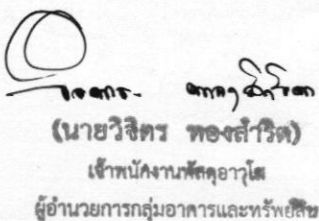 (นายวิจิตร ทองสำริต)
เจ้าพนักงานพัสดุอาวุโส
ผู้อำนวยการกลุ่มอาคารและทรัพย์สิน